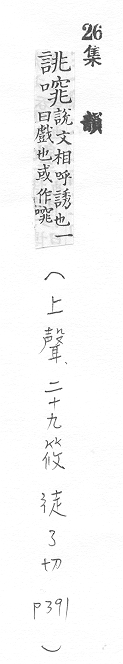 26
集韻
誂嘋說文相呼誘也一
曰戲也或作嘋
(上聲、二十九筱 徒了切 p391)